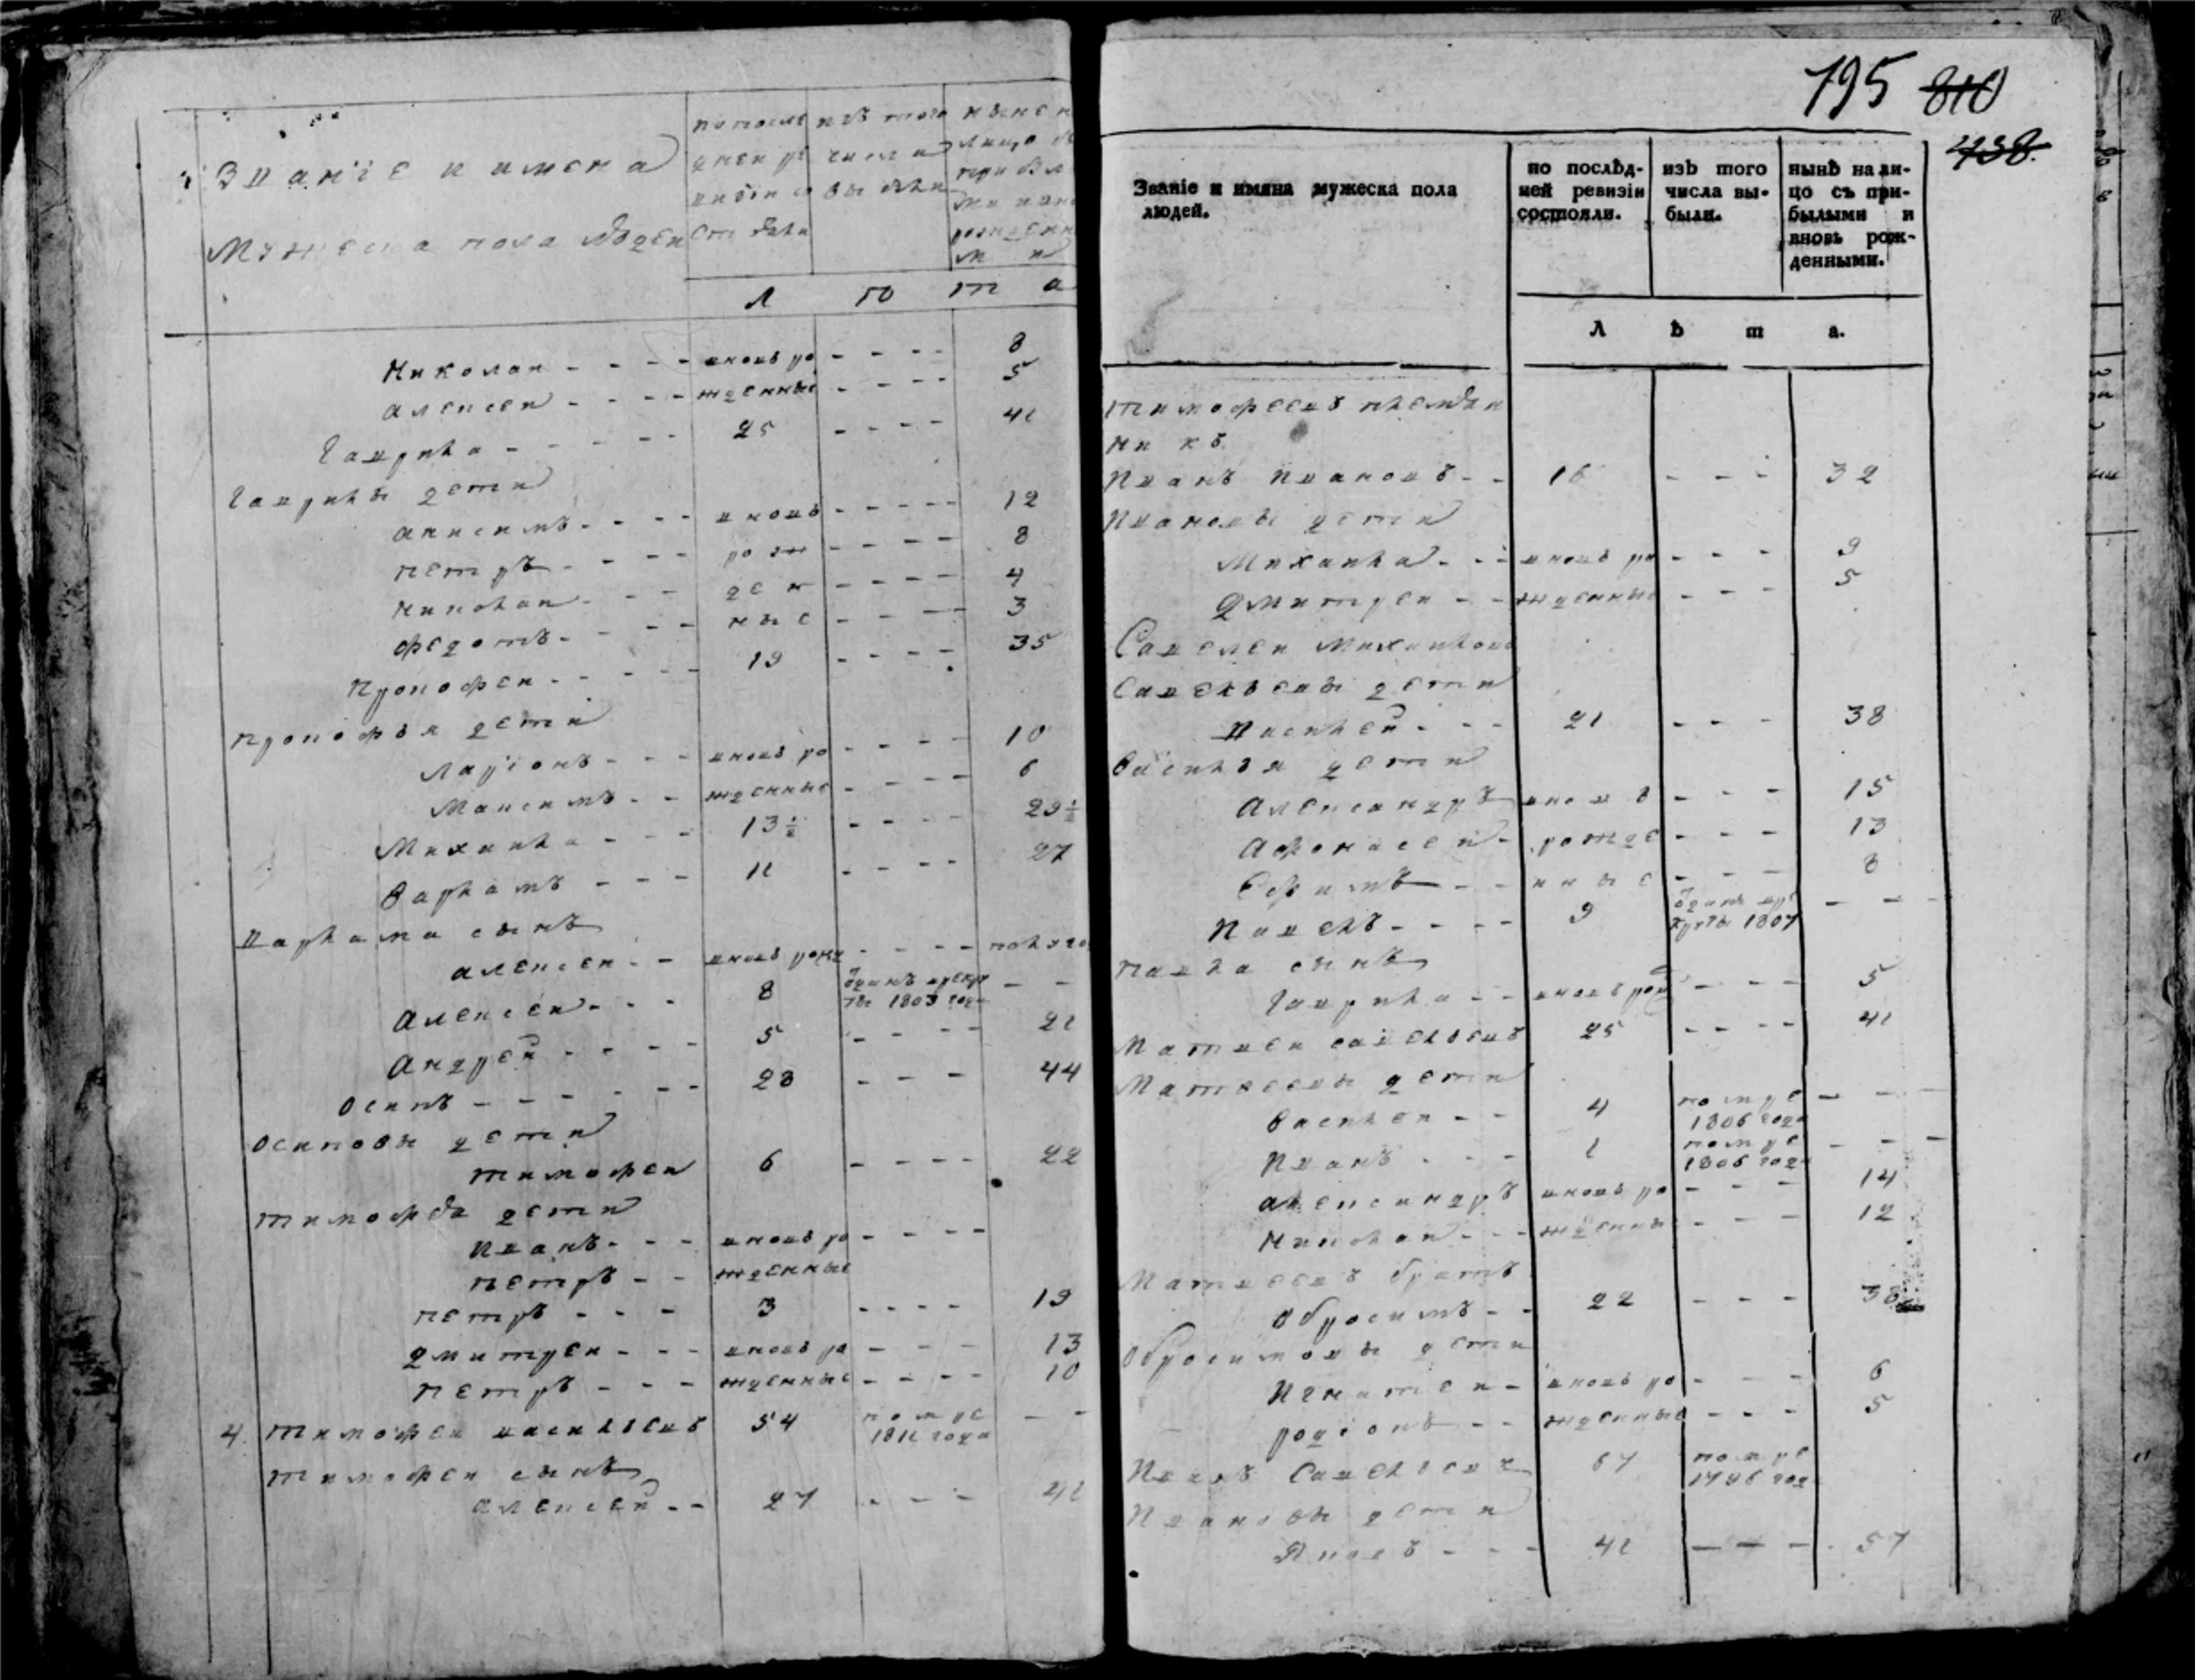 Званiе и имена
Мужеска пола людеи
по послѣ
дней ре
визiи со
стояли
изъ того
числа
выбыли
нынѣ н
лицо съ
прибы
ми и вновь
рожденн
ми
Л ѣ т а
Николаи - - - - вновь ро - - - - 8
Алексеи - - - - жденные - - - - 5
Гаврила - - - - - - 25 - - - - 41
Гаврилы дети
Анисимъ - - - - вновь - - - - - 12
Петръ - - - - рож - - - - 8
Николаи - - - ден - - - - 4
Федотъ - - - - ные - - - - 3
Прокофеи - - - - - 19 - - - - 35
Прокофья дети
Ларiонъ - - - вновь ро - - - - 10
Максимъ - - жденные - - - - 6
Михаила - - - 13½ - - - - 29½
Варламъ - - - 11 - - - - 27
Варлама сынъ
Алексеи - - вновь рож - - - - полуго
Алексеи - - - 8 отданъ врекру
ты 1803 года - -
Андрей - - - - 5 - - - - 21
Осипъ - - - - - - 28 - - - 44
Осиповы дети
Тимофеи 6 - - - - 22
Тимофея дети
Иванъ - - - вновь ро - - - -
Петръ - - жденные
Петръ - - - 3 - - - - 19
Дмитреи - - - вновь ро - - - 13
Петръ - - - жденные - - - - 10
4. Тимофеи васильевъ 54 помре
1811 года - -
Тимофеи сынъ
Алексей - - 27 - - - 41
195 810
438.
Званiе и имяна мужеска пола
людей.
по послѣд-
ней ревизiи
состояли.
изъ того
числа вы-
были.
нынѣ нали-
цо съ при-
былыми и
вновь рож-
денными.
Л ѣ т а.
Тимофеевъ племян
никъ
Иванъ Ивановъ - - 16 - - - 32
Ивановы дети
Михаила - - - вновь ро - - - 9
Дмитреи - - жденные - - - 5
Савелеи Михаиловъ
Савельевы дети
Василей - - - 21 - - - 38
Василья дети
Александръ вновь - - - 15
Афонасеи - рожде - - - 13
Ефимъ - - нные - - - 8
Павелъ - - - - 9 отданъ вре
круты 1807 - - -
Павла сынъ
Гаврила - - вновь рож - - - 5
Матвеи савельевъ 25 - - - - 41
Матвеевы дети
Василеи - - 4 помре
1806 года - - -
Иванъ - - - 1 помре
1806 года - - -
Александръ вновь ро - - - 14
Николаи - - - жденны - - - 12
Матвеевъ братъ
Обросимъ - - 22 - - - 38
Обросимовы дети
Игнатеи - вновь ро - - - 6
Родiонъ - - жденные - - - 5
Иванъ Савельевъ 67 помре
1796 года
Ивановы дети
Яковъ - - - 41 - - - 57